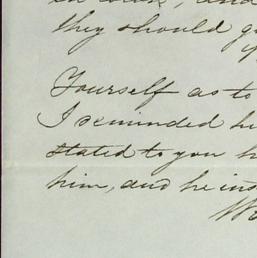 they should g
Yourself as to
I reminded h
stated to you h
him, and he ins